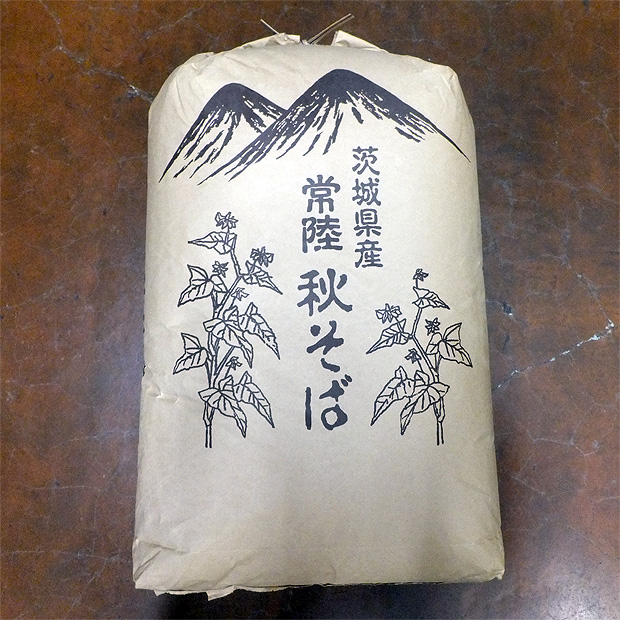 茨城県産
常陸 秋そば